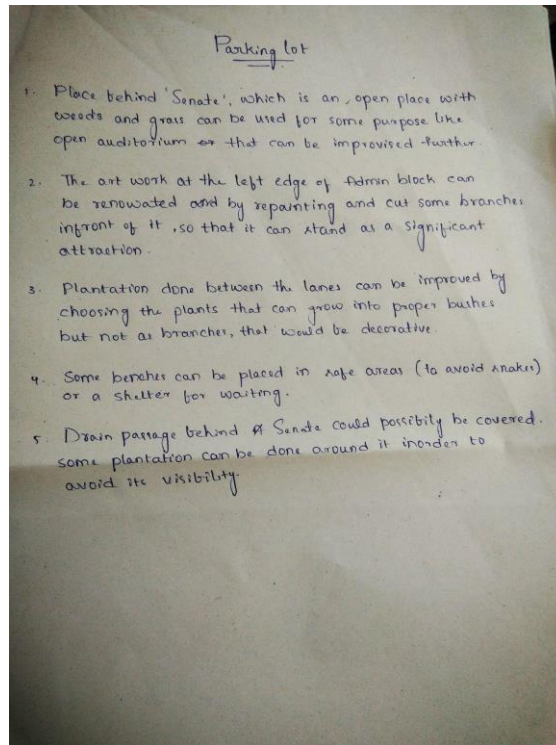 Parking lot
1. Place behind 'Senate', which is an open place with
weeds and grass can be used for some purpose like
open auditorium or that can be improvised further.
2. The art work at the left edge of Admin block can
be renowated and by repainting and cut some branches
infront of it, so that it can stand as a significant
attraction.
3. Plantation done between the lanes can be improved by
choosing the plants that can grow into proper bushes
but not as branches, that would be decorative.
4. Some benches can be placed in safe areas (to avoid snakes)
or a shelter for waiting.
5. Drain passage behind Senate could possibily be covered.
some plantation can be done around it inorder to
avoid its visibility.